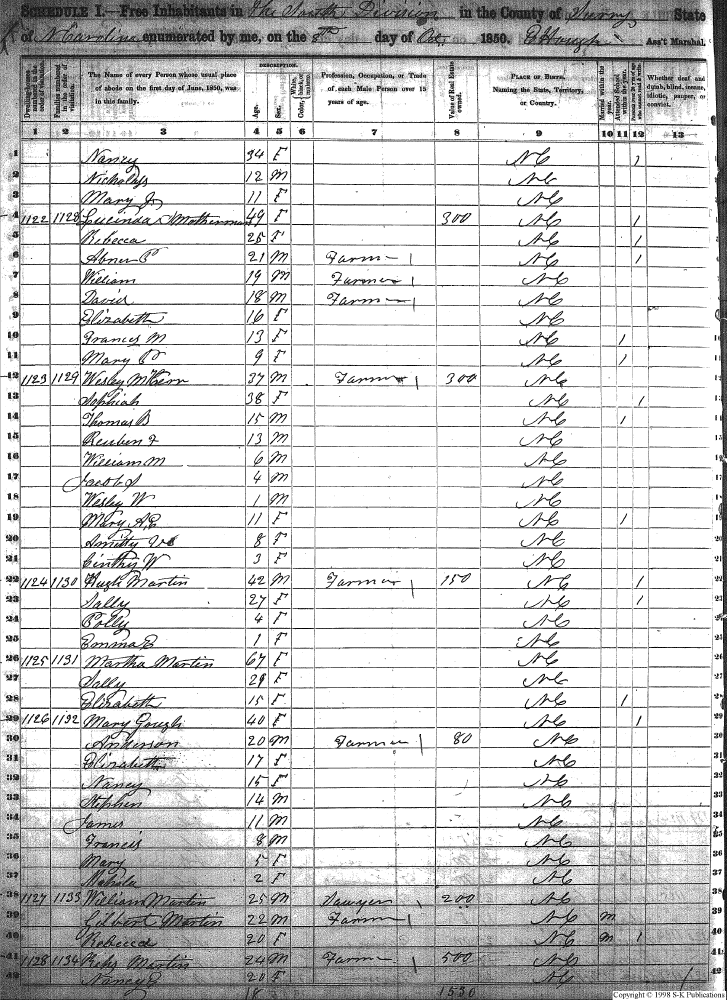 SCHEDULE I.—Free Inhabitants in The South Division in the County of Surry State
of N Carolina enumerated by me, on the 8th day of Oct. 1850. Ass't Marshal.
DESCRIPTION.
Dwelling-houses numbered in the order of visitation.
Families numbered in the order of visitation.
The Name of every Person whose usual place of abode on the first day of June, 1850, was in this family.
Age.
Sex.
White, black, or mulatto. Color,
Profession, Occupation, or Trade of each Male Person over 15 years of age.
Value of Real Estate owned.
PLACE OF BIRTH. Naming the State, Territory, or Country.
Married within the year.
Attended School within the year.
Whether deaf and dumb, blind, insane, idiotic, pauper, or convict.
1 2 3 4 5 6 7 8 9 10 11 12 13
1 Nancy 34 F NC 1
2 Nicholas 12 M NC
3 Mary J 11 F NC
4 1122 1128 Loucinda 49 F 300 NC 1
5 Rebecca 25 F NC 1
6 Abner P 21 M Farmer 1 NC 1
7 William 19 M Farmer 1 NC
8 David 18 M Farmer 1 NC
9 Elizabeth 16 F NC
10 Frances M 13 F NC 1
11 Mary P 9 F NC 1
12 1123 1129 Wesley McKern 37 M Farmer 1 300 NC
13 Sophiah 38 F NC 1
14 Thomas B 15 M NC 1
15 Reuben F 13 M NC
16 William M 6 M NC
17 Jacob S 4 M NC
18 Wesley W 1 M NC
19 Mary A E 11 F NC 1
20 8 F NC
21 Cinthy W 3 F NC
22 1124 1130 Hugh Martin 42 M Farmer 1 150 NC 1
23 Sally 27 F NC 1
24 Polly 4 F NC
25 Emma E 1 F NC
26 1125 1131 Martha Martin 67 F NC
27 Sally 29 F NC
28 Elizabeth 15 F NC 1
29 1126 1132 Mary Gough 40 F NC 1
30 Anderson 20 M Farmer 1 80 NC
31 Elizabeth 17 F NC
32 Nancy 15 F NC
33 Stephen 14 M NC
34 James 11 M NC
35 Francis 8 M NC
36 Mary 5 F NC
37 Mahala 2 F NC
38 1127 1133 William Martin 25 M Sawyer 1 200 NC
39 Gilbert Martin 22 M Farmer 1 NC M
40 Rebecca 20 F NC M 1
41 1128 1134 Martin 24 M Farmer 1 500 NC
42 Nancy E 20 F NC
18 1530
Copyright © 1998 S-K Publications